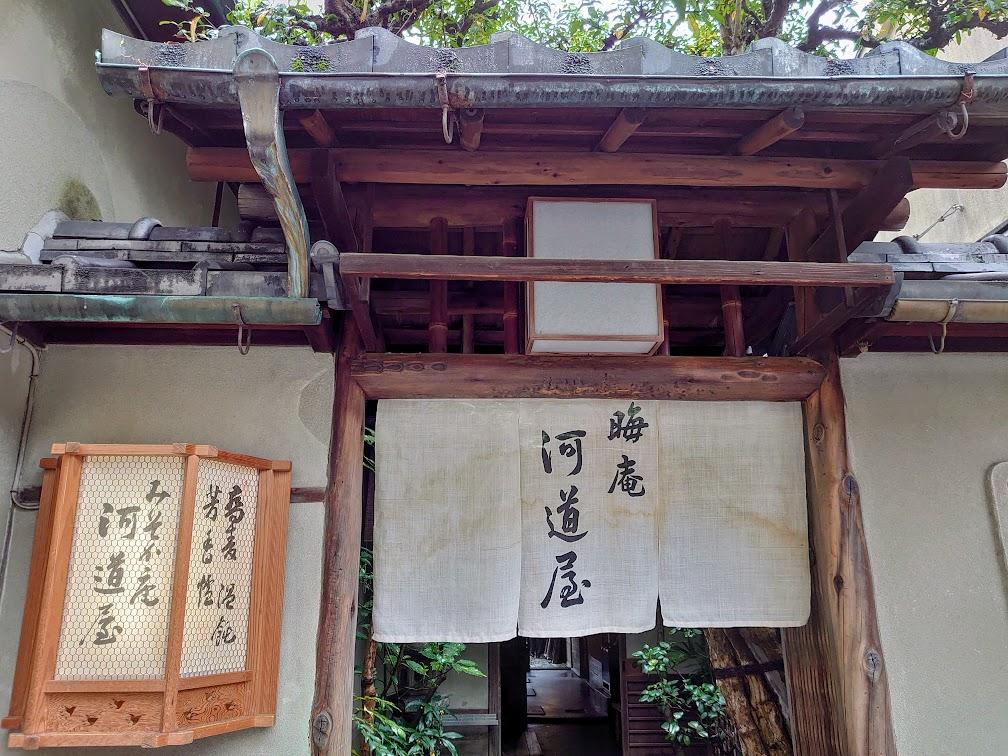 晦庵
河道屋
みそか庵
河道屋
蕎麦 温飩
芳香爐